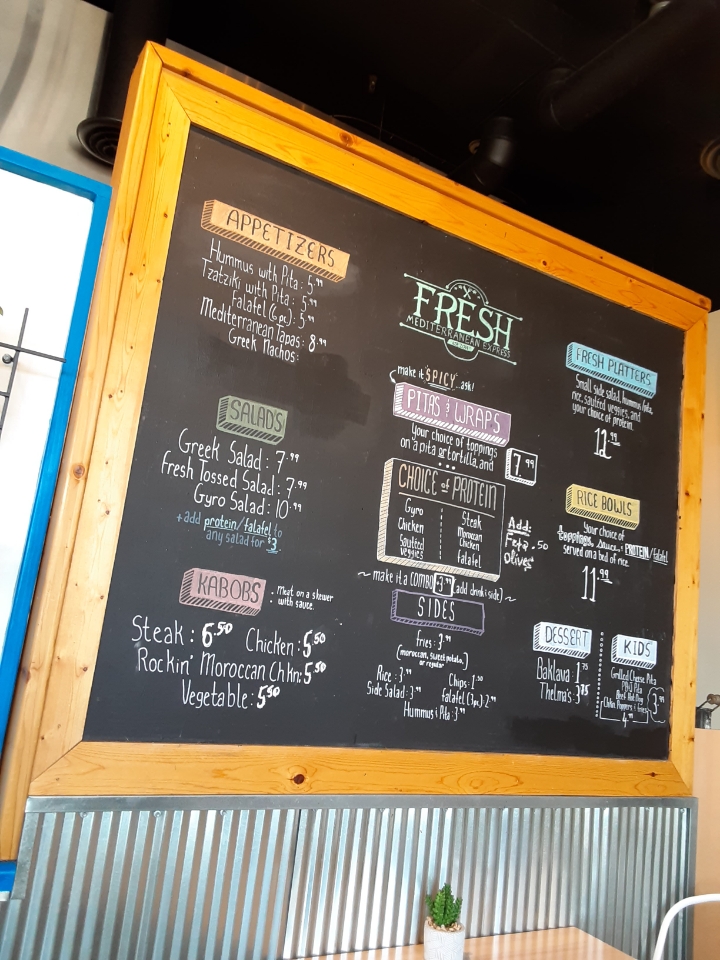 APPETIZERS
Hummus with Pita: 5.99
Tzatziki with Pita: 5.99
Falafel (6 pc): 5.99
Mediterranean Tapas: 8.99
Greek Nachos:
SALADS
Greek Salad: 7.99
Fresh Tossed Salad: 7.99
Gyro Salad: 10.99
+add protein/falafel to
any salad for $3
KABOBS
Meat on a skewer
with sauce.
Steak: 6.50
Chicken: 5.50
Rockin' Moroccan Chkn: 5.50
Vegetable: 5.50
FRESH
MEDITERRANEAN EXPRESS
make it "SPICY"... ask!
PITAS & WRAPS
Your choice of toppings
on a pita or tortilla, and
...
7.99
CHOICE of PROTEIN
Gyro
Chicken
Sautéed
veggies
Steak
Moroccan
Chicken
Falafel
Add:
Feta .50
Olives
~ make it a COMBO 3.99 (add drink & side) ~
SIDES
Fries: 3.99
(moroccan, sweet potato,
or regular)
Rice: 3.99
Chips: 1.50
Side Salad: 3.99
Falafel (3pc): 2.99
Hummus & Pita: 3.99
FRESH PLATTERS
Small side salad, hummus & pita,
rice, sautéed veggies, and
your choice of protein.
12.99
RICE BOWLS
Your choice of
toppings, sauce, & PROTEIN/falafel
served on a bed of rice.
11.99
DESSERT
Baklava: 1.75
Thelma's: 3.25
KIDS
Grilled Cheese Pita
Pita
Beef Hot Dog
Chkn Poppers & fries
3.99
4.99